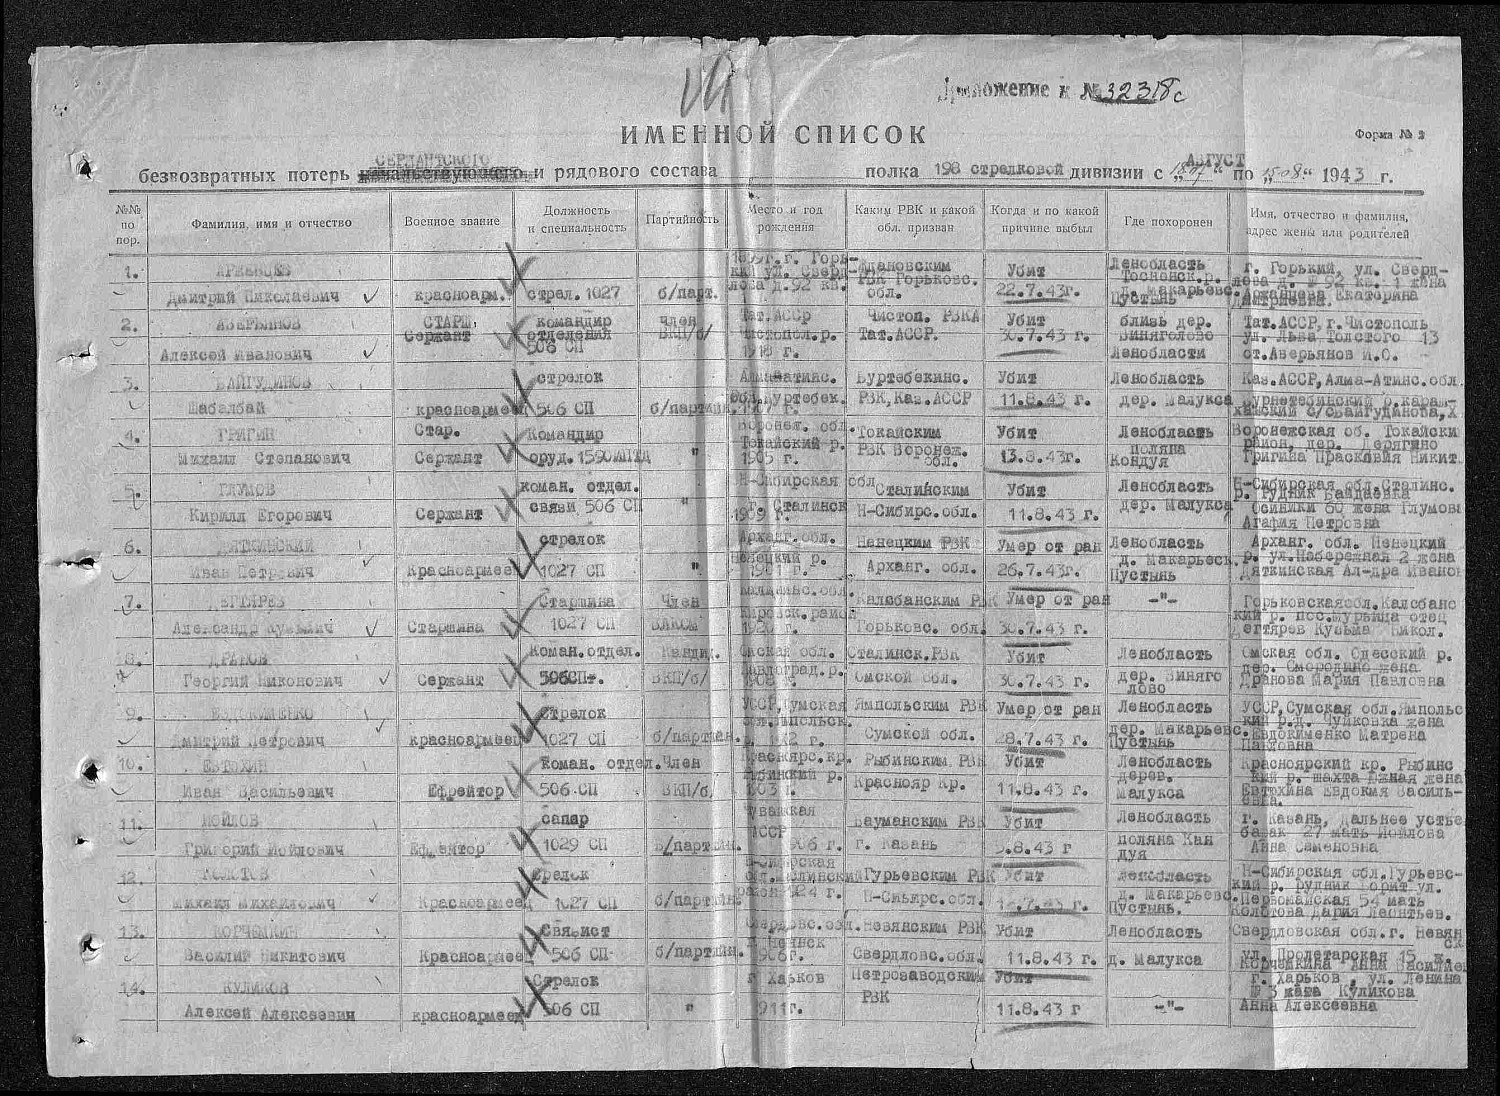 Приложение к № 32318с
ИМЕННОЙ СПИСОК
Форма № 2
СЕРЖАНТСКОГО АВГУСТ
безвозвратных потерь и рядового состава полка 198 стрелковой дивизии с по „15.08“ 1943 г.
№№ по пор.
Фамилия, имя и отчество
Военное звание
Должность и специальность
Партийность
Место и год рождения
Каким РВК и какой обл. призван
Когда и по какой причине выбыл
Где похоронен
Имя, отчество и фамилия, адрес жены или родителей
1. Дмитрий Николаевич
красноарм.
стрел. 1027
б/парт.
Ждановским РВК Горьковс. обл.
Убит 22.7.43г.
Ленобласть Тосненск.р. д. Макарьевс. Пустынь
г. Горький, ул. Сверд- лова д. № 92 кв. 1 жена Екатерина
2. АВЕРЬЯНОВ Алексей Иванович
СТАРШ. Сержант
командир отделения 506 СП
Член ВКП/б/
Тат.АССР Чистопол.р. 1918 г.
Чистоп. РВКА Тат.АССР.
Убит 30.7.43 г.
близь дер. Виняголово Ленобласти
Тат.АССР, г.Чистополь ул. Льва Толстого 13 от.Аверьянов И.О.
3. БАЙГУДИНОВ Шабалбай
красноармеец
стрелок 506 СП
б/партийн.
1907 г.
Буртебекинс. РВК, Каз.АССР
Убит 11.8.43 г.
Ленобласть дер. Малукса
Каз.АССР, Алма-Атинс.обл.
4. ГРИГИН Михаил Степанович
Стар. Сержант
Командир оруд.
"
Воронеж. обл. Токайский р. 1905 г.
Токайским РВК Воронеж. обл.
Убит 13.8.43г.
Ленобласть поляна Кондуя
Воронежская об. Токайски район, дер. Дерягино Григина Прасковия Никит.
5. ГЛУМОВ Кирилл Егорович
Сержант
коман. отдел. связи 506 СП
"
Н-Сибирская обл г. Сталинск 1909 г.
Сталинским Н-Сибирс.обл.
Убит 11.8.43 г.
Ленобласть дер. Малукса
Н-Сибирская обл.Сталинс. р. Рудник Байдаевка Осиники 60 жена Глумова Агафия Петровна
6. ДЯТКИНСКИЙ Иван Петрович
Красноармеец
стрелок 1027 СП
"
Арханг.обл. Ненецкий р.
Ненецким РВК Арханг. обл.
Умер от ран 26.7.43г.
Ленобласть д. Макарьевск. Пустынь
Арханг. обл. Ненецкий р. ул.Набережная 2 жена Дяткинская Ал-дра Иванов
7. ДЕГТЯРЕВ Александр Кузьмич
Старшина
Старшина 1027 СП
Член ВЛКСМ
1920 г.
РВК Горьковс. обл.
Умер от ран 30.7.43 г.
-"-
отец Дегтярев Кузьма Никол.
8. ДРАНОВ Георгий Никонович
Сержант
Коман.отдел. 506СП.
Кандид. ВКП/б/
Омская обл. Павлоград.р. 1908 г.
Сталинск.РВК Омской обл.
Убит 30.7.43 г.
Ленобласть дер. Виняго лово
Омская обл. Одесский р. дер. Смородино жена Дранова Мария Павловна
9. ЕВДОКИМЕНКО Дмитрий Петрович
красноармеец
Стрелок 1027 СП
б/партийн.
УССР, Сумская обл.Ямпольск.
Ямпольским РВК Сумской обл.
Умер от ран 28.7.43 г.
Ленобласть дер. Макарьевс. Пустынь
УССР, Сумская обл.Ямпольс кий р.д. Чуйковка жена Евдокименко Матрена Павловна
10. ЕВТЮХИН Иван Васильевич
Ефрейтор
Коман. отдел. 506 СП
Член ВКП/б/
Красноярс.кр. Рыбинский р. 1903 г.
Рыбинским РВК Краснояр Кр.
Убит 11.8.43 г.
Ленобласть дерев. Малукса
Красноярский кр. Рыбинс кий р. шахта Южная жена Евтюхина Евдокия Василь- евна.
11. ИОЙЛОВ Григорий Иойлович
Ефрейтор
сапар 1029 СП
Б/партийн.
Чувашская АССР 1906 г.
Бауманским РВК г. Казань
Убит 9.8.43 г
Ленобласть поляна Кан дуя
г. Казань, Дальнее устье барак 27 мать Иойлова Анна Семеновна
12. КОЛОТОВ Михаил Михайлович
Красноармеец
Стрелок 1027 СП
б/партийн.
1924 г.
Гурьевским РВК Н-Сибирс.обл.
Убит
Ленобласть д. Макарьевс. Пустынь.
Н-Сибирская обл.Гурьевс- кий р. Рудник ул. Первомайская 54 мать Колотова Дария Леонтьев.
13. КОРЧЕМКИН Василий Никитович
Красноармеец
Связист 506 СП
б/партийн.
Свердловс.обл. г. Невянск 1906г.
Невянским РВК Свердловс. обл.
Убит 11.8.43 г.
Ленобласть д. Малукса
Свердловская обл.г. Невян ск ул. Пролетарская 15 ж. Корчемкина Анна Василиев
14. КУЛИКОВ Алексей Алексеевич
красноармеец
Стрелок 506 СП
"
г Харьков 1911г.
Петрозаводским РВК
Убит 11.8.43 г
-"-
г. Харьков, ул. Ленина № 3 жена Куликова Анна Алексеевна